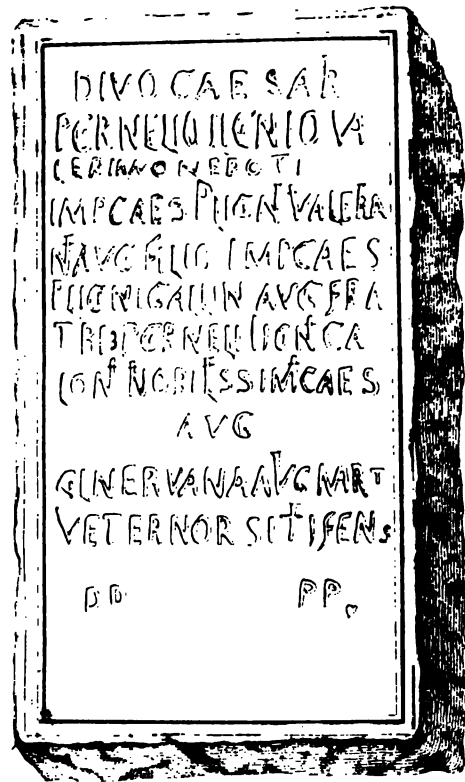 DIVO CAESARI
PCORNELIO LICINIO VA
LERIANO NEPOTI
IMPCAES PLICINI VALERIA
NI AVG FILIO IMPCAES
AVG FRA
TRI PCORNELI LICINI
NOBILISSIMI CAES
AVG
AVG MART
VETERNOR SITIFENS
DD PP